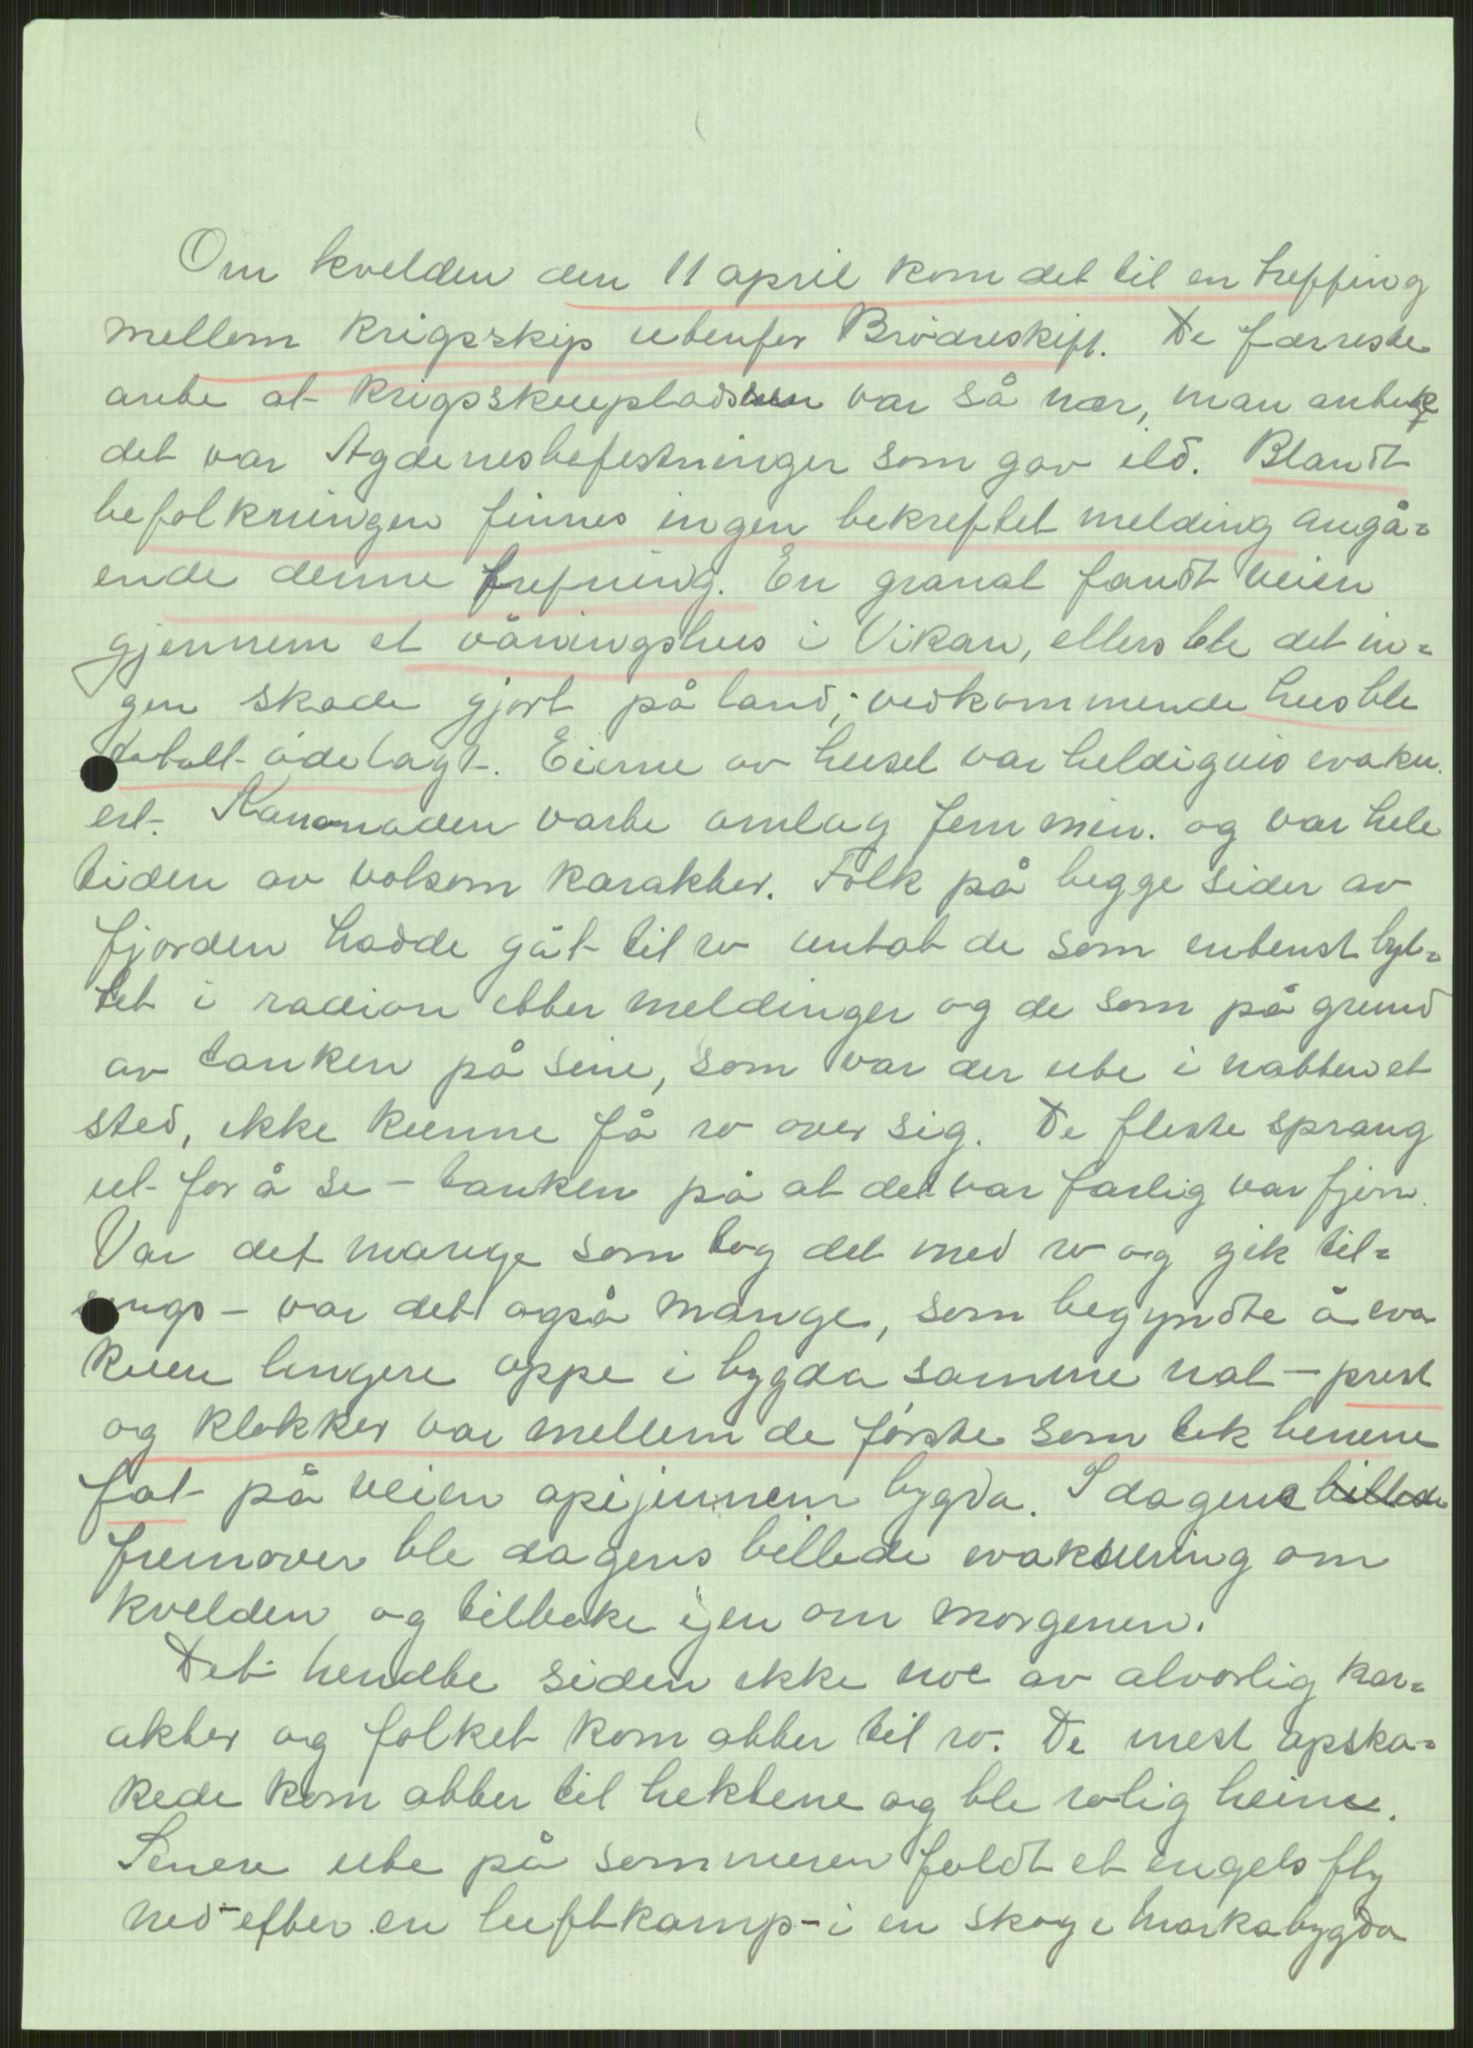 Om kvelden den 11 april kom det til en treffing
mellem krigsskip utenfor Brødreskift. De færreste
ante at krigsskuepladsen var så nær, man antok
det var Agdenesbefestninger som gav ild. Blandt
befolkningen finnes ingen bekreftet melding angå-
ende denne trefning. En granat fandt veien
gjennem et våningshus i Vikan, ellers ble det in-
gen skade gjort på land; vedkommende hus ble
totalt ødelagt. Eierne av huset var heldigvis evaku-
ert. Kanonaden varte omlag fem min. og var hele
tiden av volsom karakter. Folk på begge sider av
fjorden hadde gåt til ro untat de som entenst lyt-
tet i radion etter meldinger og de som på grund
av tanken på sine, som var der ute i natten et
sted, ikke kunne få ro over sig. De fleste sprang
ut for å se – tanken på at det var farlig var fjern.
Var det mange som tog det med ro og gik til-
sengs – var det også mange, som begyndte å eva
kuere lengere oppe i bygda samme nat – prest
og klokker var mellem de første som tok benene
fat på veien opijennem bygda. I dagene billede
fremover ble dagens billede evakuering om
kvelden og tilbake ijen om morgenen.
Det hendte siden ikke noe av alvorlig kar-
akter og folket kom atter til ro. De mest opska-
kede kom atter til hektene og ble rolig heime.
Senere ute på sommeren foldt et engels fly
ned – efter en luftkamp – i en skog i Markabygda